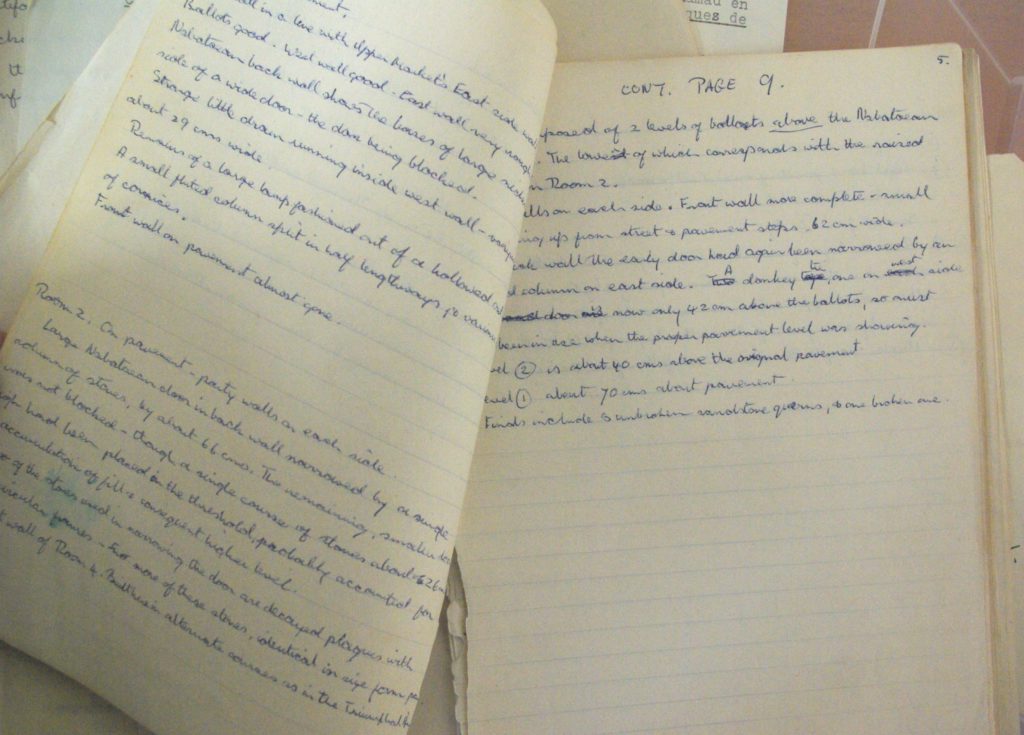 all in a line with Upper Market's East side wall
Ballots good. West wall good - East wall very rough
Nabataean back wall shows the bases of large niches
side of a wide door - the door being blocked.
Strange little drain running inside west wall -
about 29 cms wide.
Remains of a large lamp fashioned out of a hollowed out
A small fluted column split in half lengthways, & various
of cornices.
Front wall on pavement almost gone.
Room 2. On pavement - party walls on each side.
Large Nabataean door in back wall narrowed by a single
column of stones, by about 66 cms. The remaining, smaller
was not blocked - though a single course of stones about 26 cm
high had been placed in the threshold, probably accounted for
accumulation of fill & consequent higher level.
of the stones used in narrowing the door are decorated plaques with
circular frames - For more of these stones, identical in size form
wall of Room 4. Built in alternate courses as in the Triumphal
ques de
5.
CONT. PAGE 9.
posed of 2 levels of ballots above the Nabataean
The lowest of which corresponds with the raised
in Room 2.
walls on each side. Front wall more complete - small
ing up from street & pavement steps. 62 cm wide.
back wall the early door had again been narrowed by an
column on east side. A donkey tie, one on west side
now only 42 cm above the ballots, so must
been in use when the proper pavement level was showing.
level ② is about 40 cms above the original pavement
level ① about 70 cms about pavement.
Finds include 3 unbroken sandstone querns, & one broken one.